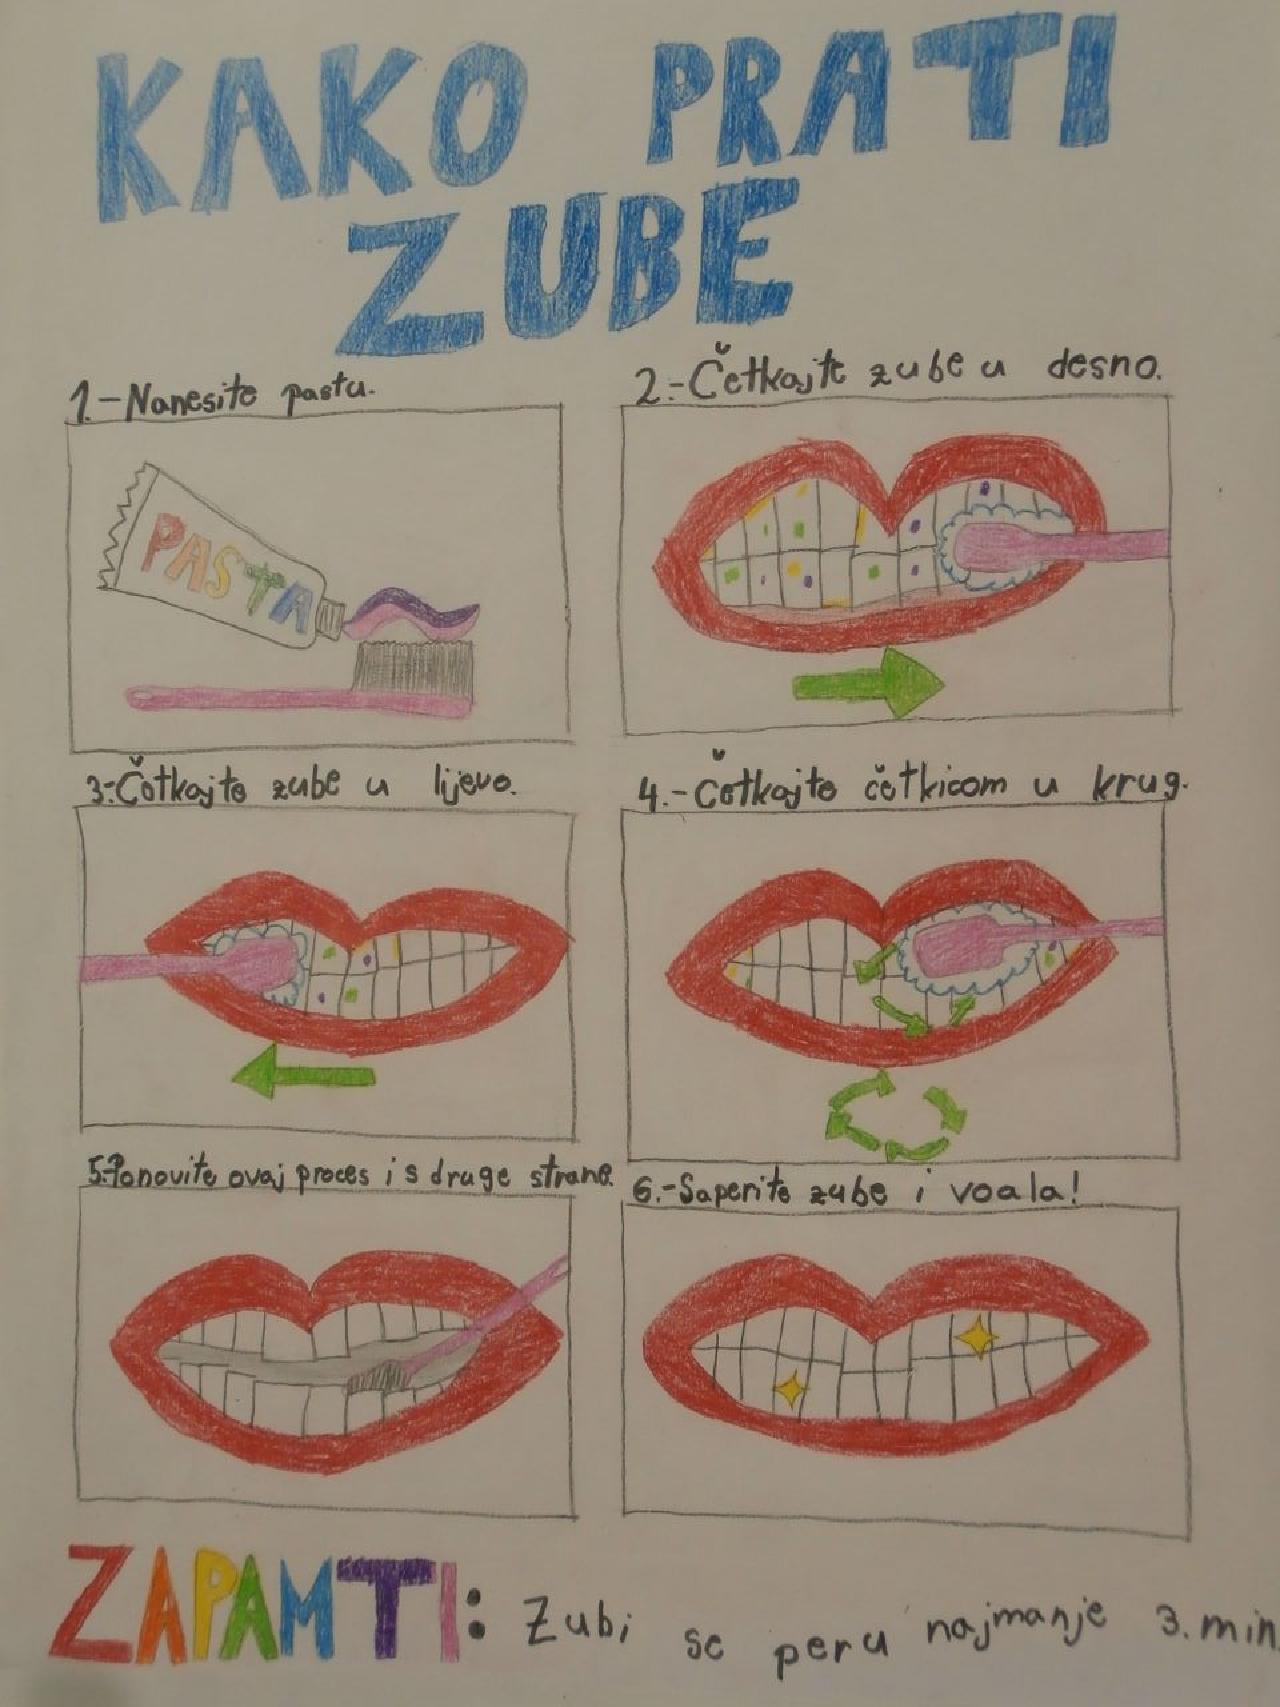 KAKO PRATI
ZUBE
1.-Nanesite pastu.
2.-Četkajte zube u desno.
PASTA
3.-Četkajte zube u lijevo.
4.-Četkajte četkicom u krug.
5.Ponovite ovaj proces i s druge strane.
6.-Saperite zube i voala!
ZAPAMTI: Zubi se peru najmanje 3.min.